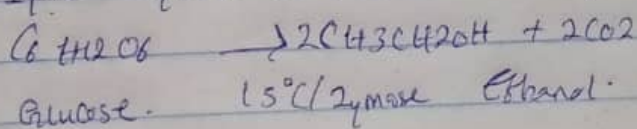 C6 H12O6 → 2CH3CH2OH + 2CO2
Glucose. 15°C/Zymase Ethanol.